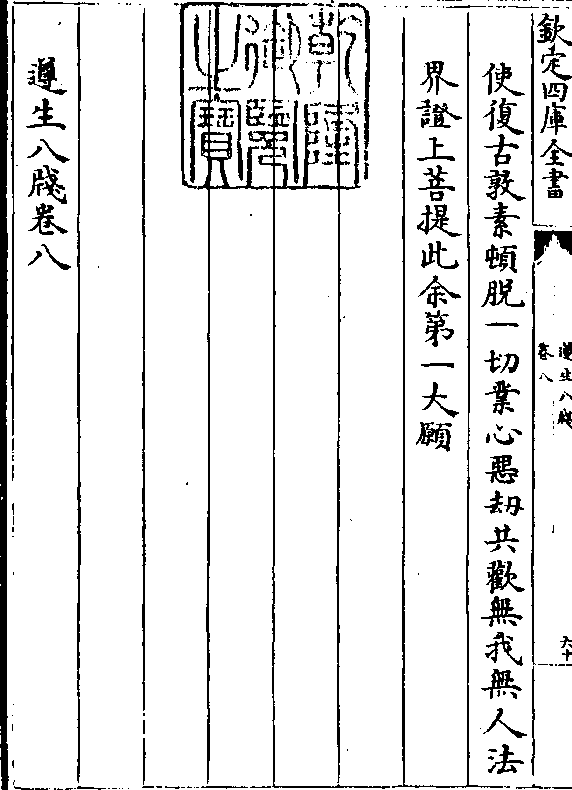 欽定四庫全書
遵生八牋
卷八
六十
使復古敦素頓脫一切業心惡劫共歡無我無人法
界證上菩提此余第一大願
乾隆
御覽
之寶
遵生八牋卷八